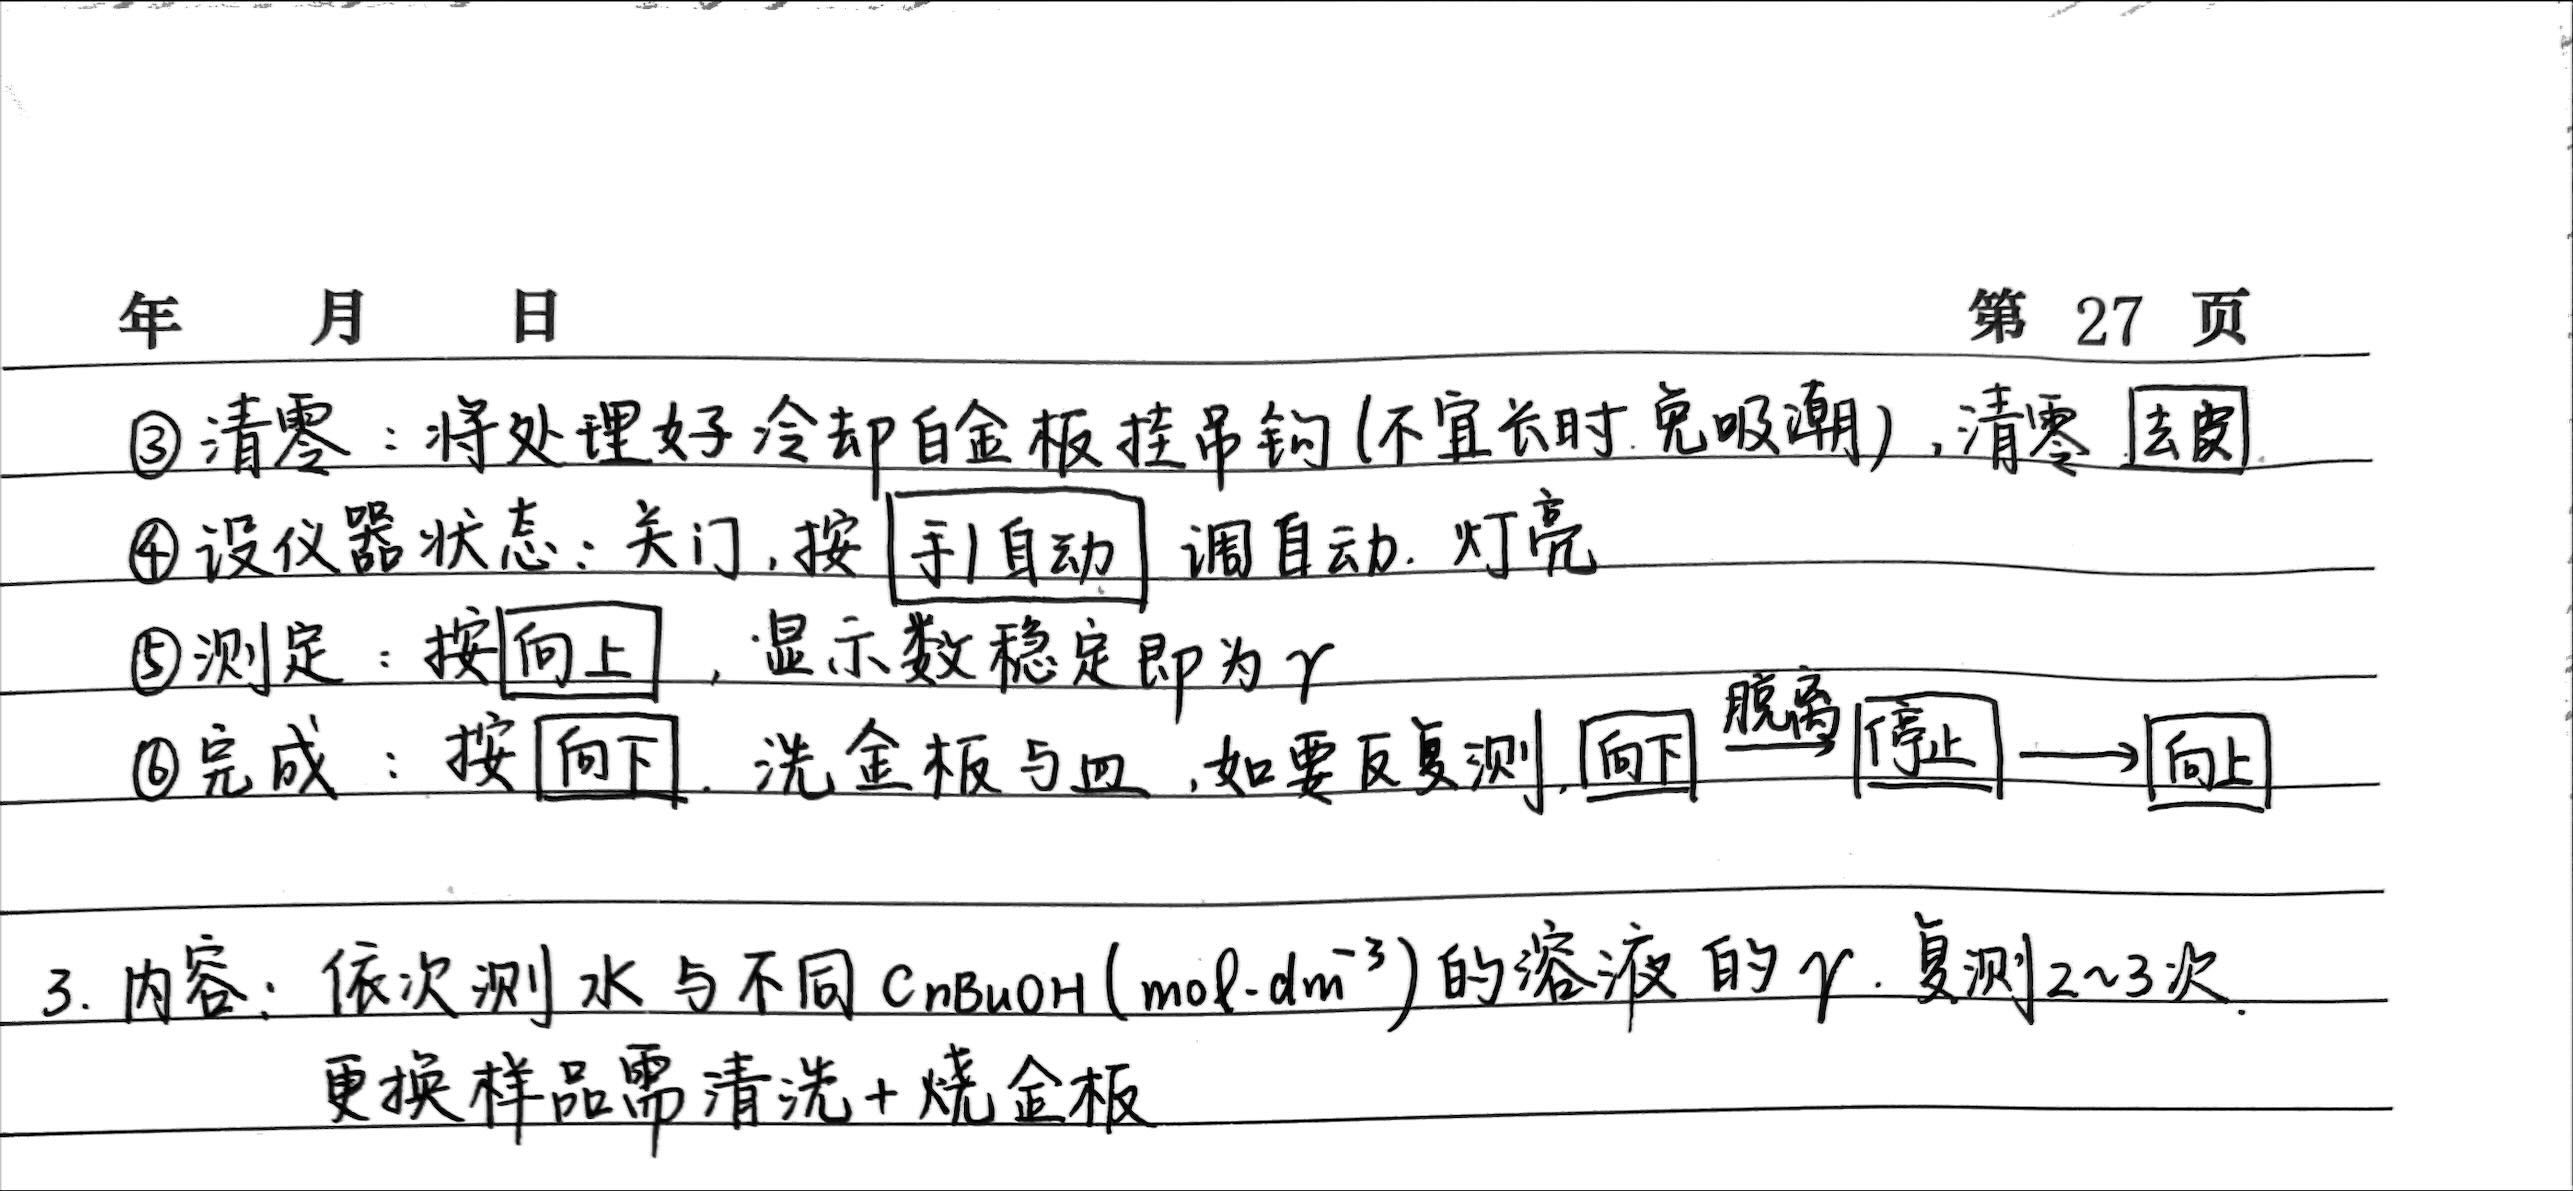 年 月 日 第 27 页
③清零：将处理好冷却白金板挂吊钩(不宜长时.免吸潮),清零 去皮
④设仪器状态：关门,按 手|自动 调自动.灯亮
⑤测定：按 向上 ,显示数稳定即为γ
⑥完成：按 向下 . 洗金板与皿,如要反复测, 向下 脱离→ 停止 → 向上
3. 内容：依次测水与不同CnBuOH(mol·dm⁻³)的溶液的γ.复测2~3次.
更换样品需清洗+烧金板